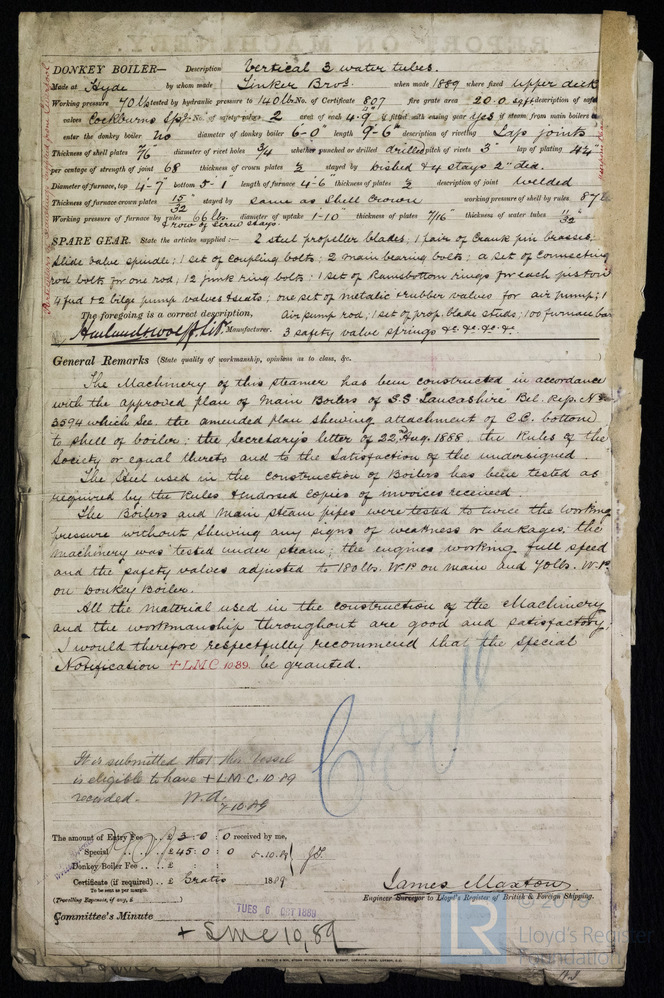 DONKEY BOILER— Description Vertical 3 water tubes.
Made at Hyde by whom made Tinker Bros. when made 1889 where fixed Upper deck
Working pressure 70 lbs tested by hydraulic pressure to 140 lbs No. of Certificate 807 fire grate area 20.0 sq ft description of safety
valves Cockburns Spg No. of safety valves 2 area of each 4.9" if fitted with easing gear yes if steam from main boilers can
enter the donkey boiler No diameter of donkey boiler 6-0" length 9-6" description of riveting Lap joints
Thickness of shell plates 7/16 diameter of rivet holes 3/4 whether punched or drilled drilled pitch of rivets 3" lap of plating 4 1/2"
per centage of strength of joint 68 thickness of crown plates 1/2 stayed by Dished & 4 stays 2" dia.
Diameter of furnace, top 4-7" bottom 5-1" length of furnace 4-6" thickness of plates 1/2 description of joint welded
Thickness of furnace crown plates 15/32 stayed by same as shell crown working pressure of shell by rules 87 lbs
Working pressure of furnace by rules 66 lbs. diameter of uptake 1-10" thickness of plates 7/16" thickness of water tubes 11/32"
& row of screw stays.
SPARE GEAR. State the articles supplied:— 2 steel propeller blades; 1 pair of Crank pin brasses;
Slide valve spindle; 1 set of coupling bolts; 2 main bearing bolts; a set of connecting
rod bolts for one rod; 12 junk ring bolts; 1 set of Ramsbottom rings for each piston
4 feed & 2 bilge pump valves & seats; one set of metalic & rubber valves for air pump; 1
The foregoing is a correct description, Air pump rod; 1 set of prop. blade studs; 100 furnace bars
Harland & Wolff Ld Manufacturer. 3 safety valve springs &c. &c. &c. &c.
General Remarks (State quality of workmanship, opinions as to class, &c.
The Machinery of this steamer has been constructed in accordance
with the approved plan of Main Boilers of S.S. "Lancashire" Bel. Rep. No
3594 which see. the amended plan shewing attachment of C.C. bottoms
to shell of boiler; the Secretary's letter of 22nd Aug. 1888, the Rules of the
Society or equal thereto and to the satisfaction of the undersigned.
The Steel used in the construction of Boilers has been tested as
required by the Rules & endorsed copies of invoices received.
The Boilers and Main Steam pipes were tested to twice the working
pressure without shewing any signs of weakness or leakages; the
machinery was tested under steam; the engines working full speed
and the safety valves adjusted to 180 lbs. W.P. on main and 70 lbs. W.P.
on Donkey Boiler.
All the material used in the construction of the Machinery
and the workmanship throughout are good and satisfactory;
I would therefore respectfully recommend that the special
Notification + LMC 10.89. be granted.
It is submitted that this vessel
is eligible to have + LMC. 10.89
recorded. W.A.
7.10.89
The amount of Entry Fee .. £ 3 : 0 : 0 received by me,
Special .. £ 45 : 0 : 0 5.10.89
Donkey Boiler Fee .. £
Certificate (if required) .. £ Gratis 1889
To be sent as per margin.
(Travelling Expenses, if any, £ )
James Maxton
Engineer Surveyor to Lloyd's Register of British & Foreign Shipping.
Committee's Minute TUES 8 OCT 1889
+ LMC 10,89
LR
Lloyd's Register
Foundation